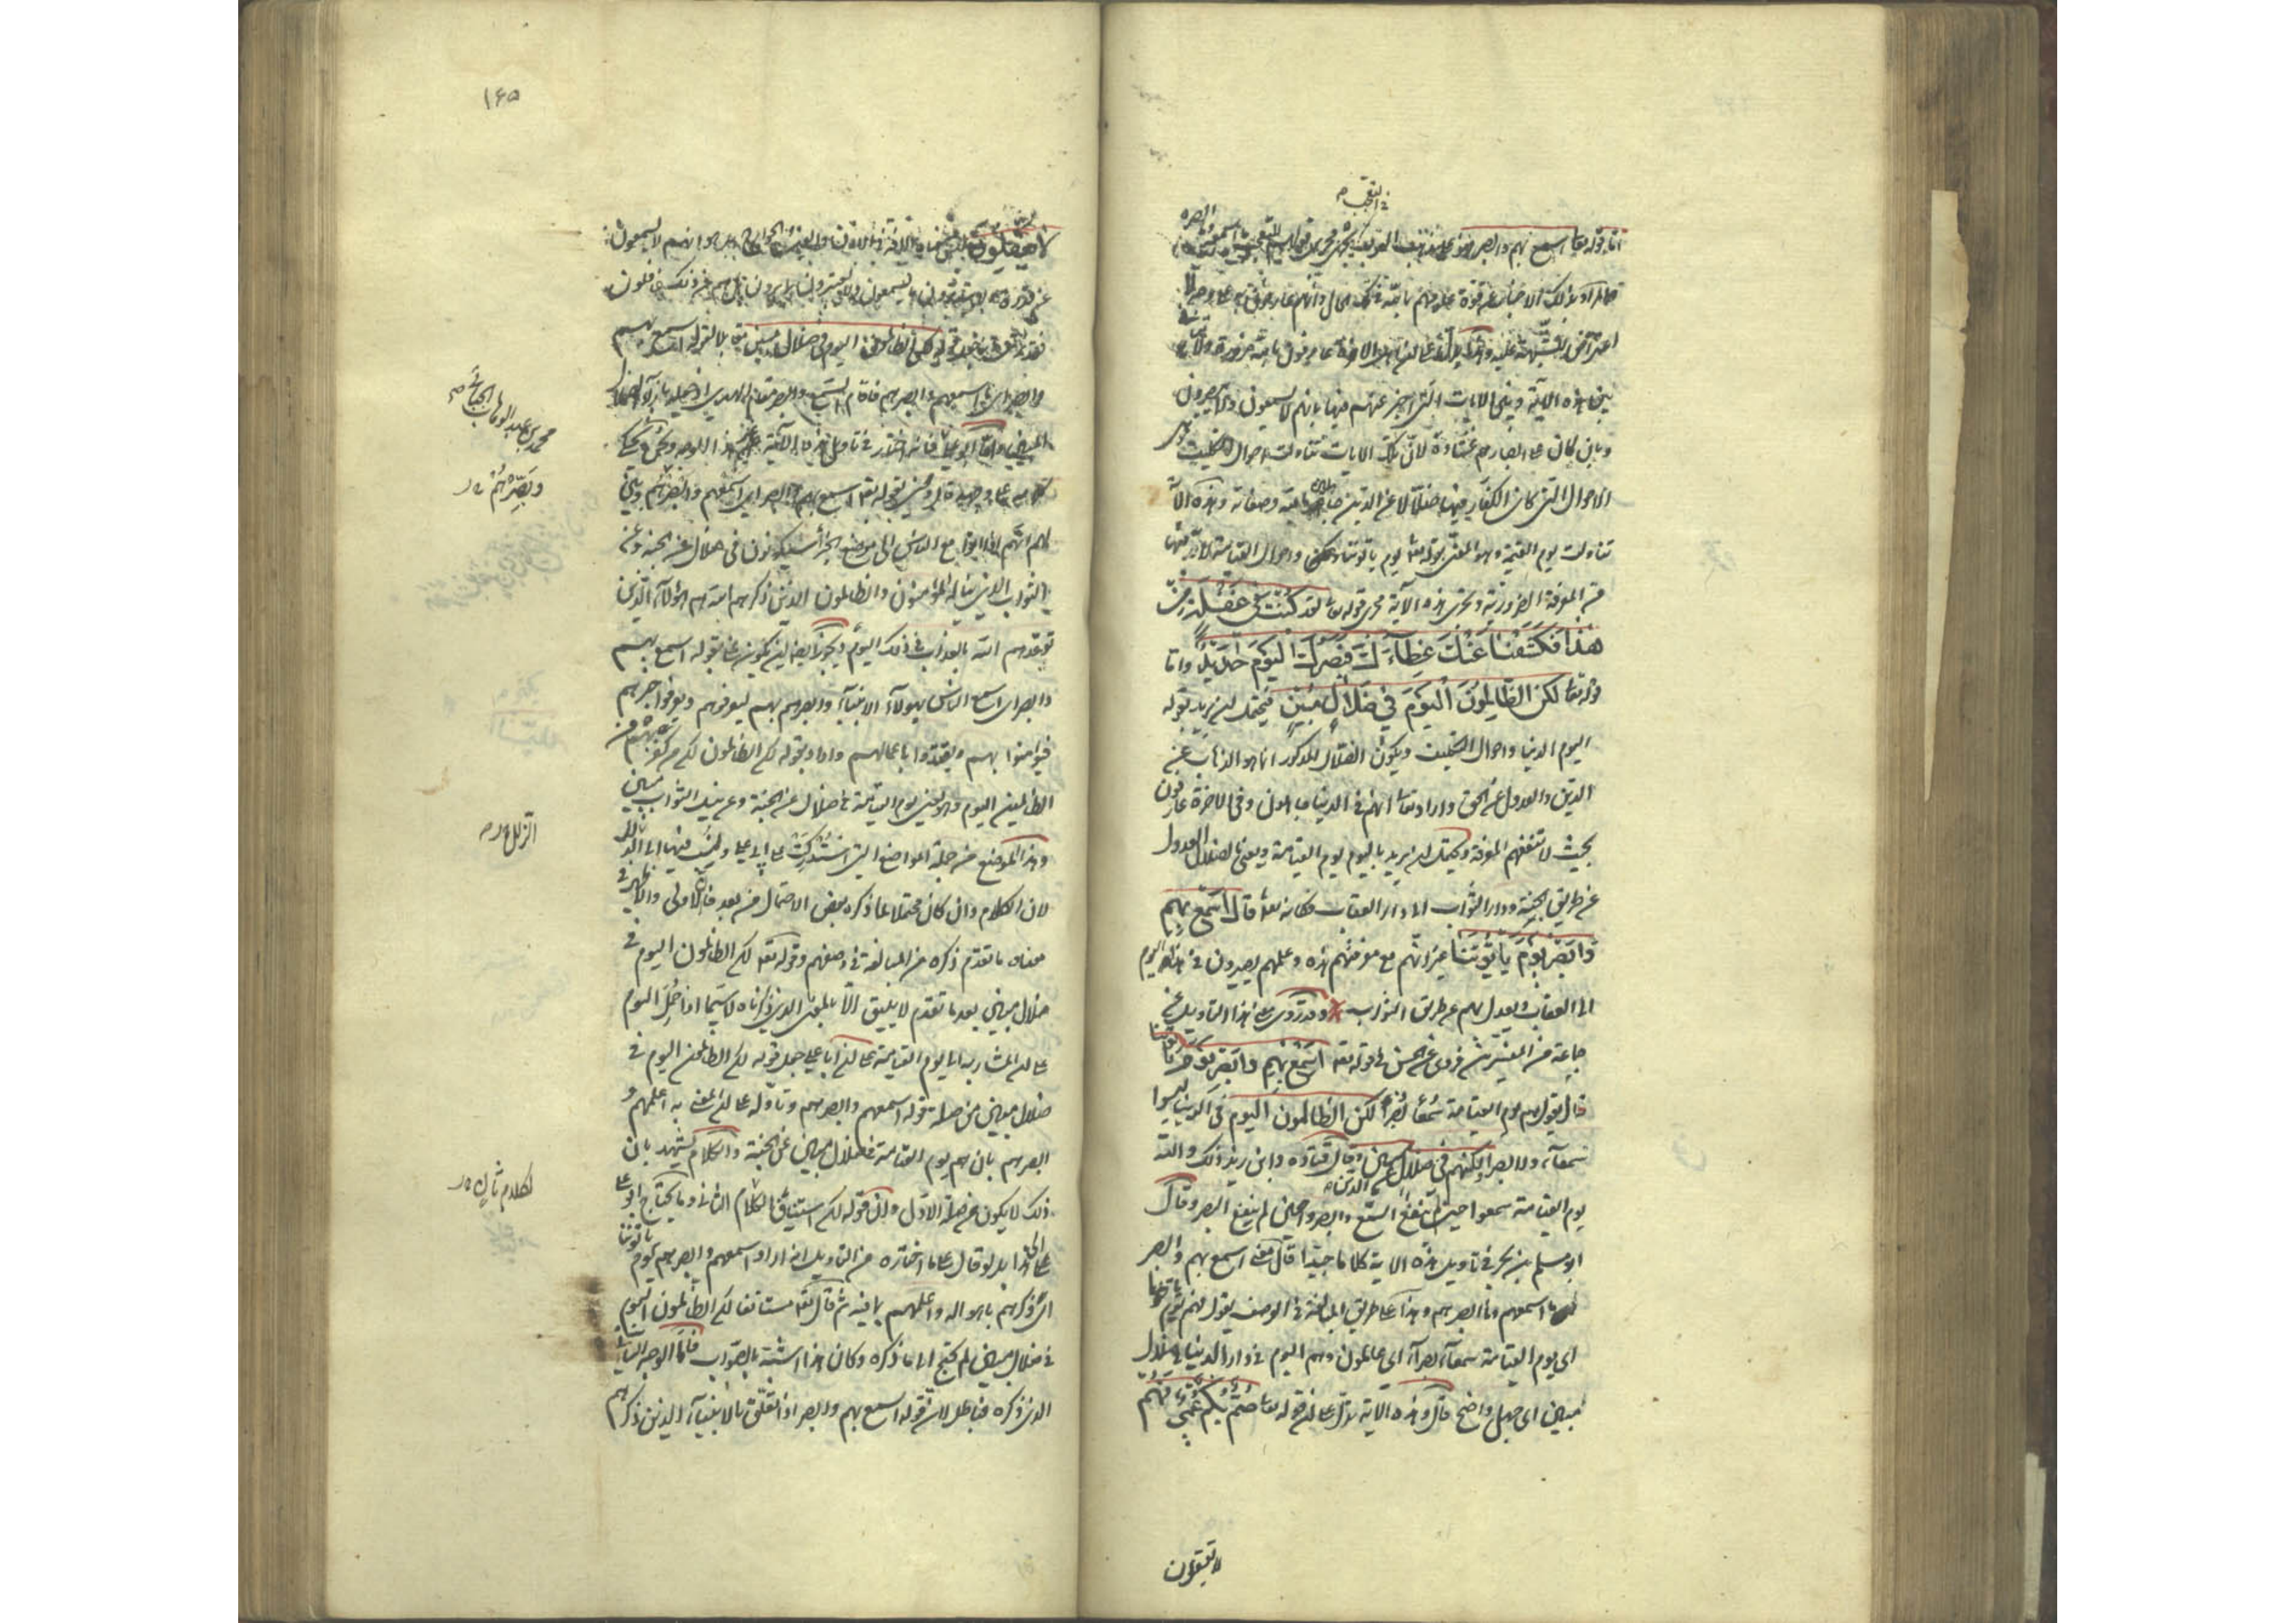 في التعجب
اما قوله تعالى اسمع بهم وابصر فهو على مذهب العرب في التعجب ويجري مجرى قولهم ما اسمعهم وما ابصرهم
فالمراد بذلك الاخبار عن قوة علومهم بالله في تلك الحال وانهم عارفون به على وجه لا
اعتراض للشبهة عليه وهذا يدل على ان اهل الاخرة عارفون بالله ضرورة ولا تنافي
بين هذه الاية وبين الايات التي اخبر عنهم فيها بانهم لا يسمعون ولا يبصرون
وبان كان على ابصارهم غشاوة لان تلك الايات تناولت احوال التكليف وهي
الاحوال التي كان الكفار فيها ضلالا عن الدين جاهلين بالله وصفاته وهذه الاية
تناولت يوم القيمة وهو المعني بقوله تعالى يوم ياتوننا ولكن واحوال القيامة لا بد فيها
من المعرفة الضرورية وتجري هذه الاية مجرى قوله تعالى لقد كنت في غفلة من
هذا فكشفنا عنك غطاءك فبصرك اليوم حديد واما
قوله تعالى لكن الظالمون اليوم في ضلال مبين فيحتمل ان يريد بقوله
اليوم الدنيا واحوال التكليف ويكون الضلال المذكور انما هو الذهاب عن
الدين والعدول عن الحق واراد تعالى انهم في الدنيا جاهلون وفي الاخرة عارفون
بحيث لا تنفعهم المعرفة ويحتمل ان يريد باليوم يوم القيامة ويعني بالضلال العدول
عن طريق الجنة ودار الثواب الى دار العقاب فكانه تعالى قال اسمع بهم
وابصر يوم ياتوننا غير انهم مع معرفتهم هذه وعلمهم يصيرون في هذا اليوم
الى العقاب ويعدل بهم عن طريق الثواب وقد روي معنى هذا التاويل عن
جماعة من المفسرين فروي عن الحسن في قوله تعالى اسمع بهم وابصر يوم ياتوننا
قال يقول هم يوم القيامة سمعا بصرا لكن الظالمون اليوم في الدنيا ليسوا
سمعاء ولا بصراء ولكنهم في ضلال عن الدين مبين وقال قتادة وابن زيد ذلك والله
يوم القيامة سمعوا حين لم ينفع السمع وابصروا حين لم ينفع البصر وقال
ابو مسلم بن بحر في تاويل هذه الاية كلاما جيدا قال معنى اسمع بهم وابصر
ما اسمعهم وما ابصرهم وهذا على طريق المبالغة في الوصف يقول فهم يوم ياتوننا
اي يوم القيامة سمعاء بصراء اي عالمون وهم اليوم في دار الدنيا في ضلال
مبين اي جهل واضح قال وهذه الاية تدل على ان قوله تعالى صم بكم عمي فهم
لا يعقلون
١٤٥
لا يعقلون ليس معناه الافة في الاذن والعين والجوارح بل هو انهم لا يسمعون
عن قدرة ولا يتدبرون ما يسمعون ولا يعتبرون بما يرون بل هم عن ذلك غافلون
فقد نرى ان الله تعالى جعل قوله لكن الظالمون اليوم في ضلال مبين مقابلا لقوله اسمع بهم
وابصر اي ما اسمعهم وما ابصرهم فاقام السمع والبصر مقام الهدى اذ جعله بازاء الضلال
المبين واما ابو علي فانه اختار في تاويل هذه الاية غير هذا الوجه ونحن نحكي
محمد بن عبد الوهاب الجبائي صح
كلامه على وجهه قال وعني بقوله تعالى اسمع بهم وابصر اي اسمعهم وابصرهم وبين
وبصرهم
لهم انهم اذا اتوا مع الناس الى موضع الجزاء سيكونون في ضلال عن الجنة وعن
الثواب الذي يناله المؤمنون والظالمون الذين ذكرهم الله هم هؤلاء الذين
توعدهم الله بالعذاب في ذلك اليوم ويجوز ايضا ان يكون عنى بقوله اسمع بهم
وابصر اي اسمع الناس بهؤلاء الانبياء وابصرهم بهم ليعرفوهم ويعرفوا خبرهم
فيؤمنوا بهم ويقتدوا باعمالهم واراد بقوله لكن الظالمون لكن من كفر بهم من
الظالمين اليوم وهو يعني يوم القيامة في ضلال عن الجنة وعن نيل الثواب مبين
وهذا الموضع من جملة المواضع التي استدركت على ابي علي وينسب فيها الى الزلل
الزلل
لان الكلام وان كان محتملا لما ذكره بعض الاحتمال من بعد فان الاولى والاظهر في
معناه ما تقدم ذكره من المبالغة في وصفهم وقوله تعالى لكن الظالمون اليوم في
ضلال مبين بعد ما تقدم لا يليق الا بالمعنى الذي ذكرناه لا سيما اذا حمل اليوم
على ان المشار به الى يوم القيامة على ان ابا علي جعل قوله لكن الظالمون اليوم في
ضلال مبين من صلة قوله اسمعهم وابصرهم وتاوله على ان المعنى به اعلمهم و
ابصرهم بان هم يوم القيامة في ضلال مبين عن الجنة والكلام يشهد بان
ذلك لا يكون من صلة الاول وان قوله لكن استيناف لكلام ثان وما يحتاج ابو علي
لكلام ثان
الى هذا بل لو قال على ما اختاره من التاويل انه اراد اسمعهم وابصرهم يوم ياتوننا
اي ذكرهم باهواله واعلمهم بما فيه ثم قال تعالى مستانفا لكن الظالمون اليوم
في ضلال مبين لم يحتج الى ما ذكره وكان هذا اشبه بالصواب فاما الوجه الثاني
الذي ذكره فباطل لان قوله اسمع بهم وابصر اذا تعلق بالانبياء الذين ذكرهم